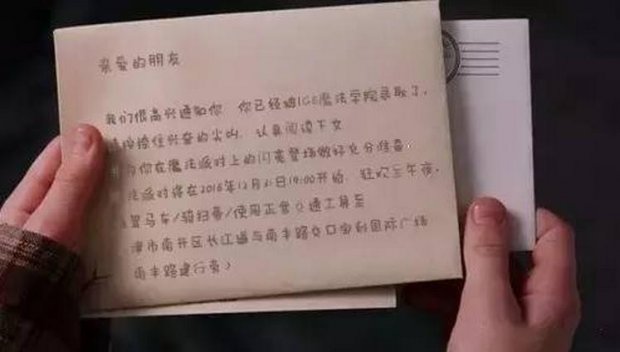 亲爱的朋友
我们很高兴通知你，你已经被IGG魔法学院录取了，
请按捺住兴奋的尖叫，认真阅读下文
你在魔法派对上的闪亮登场做好充分准备，
法派对将在2016年12月21日19:00开始，狂欢至午夜，
马车/骑扫帚/使用正常交通工具至
津市南开区长江道与南丰路交口 国际广场
南丰路 行